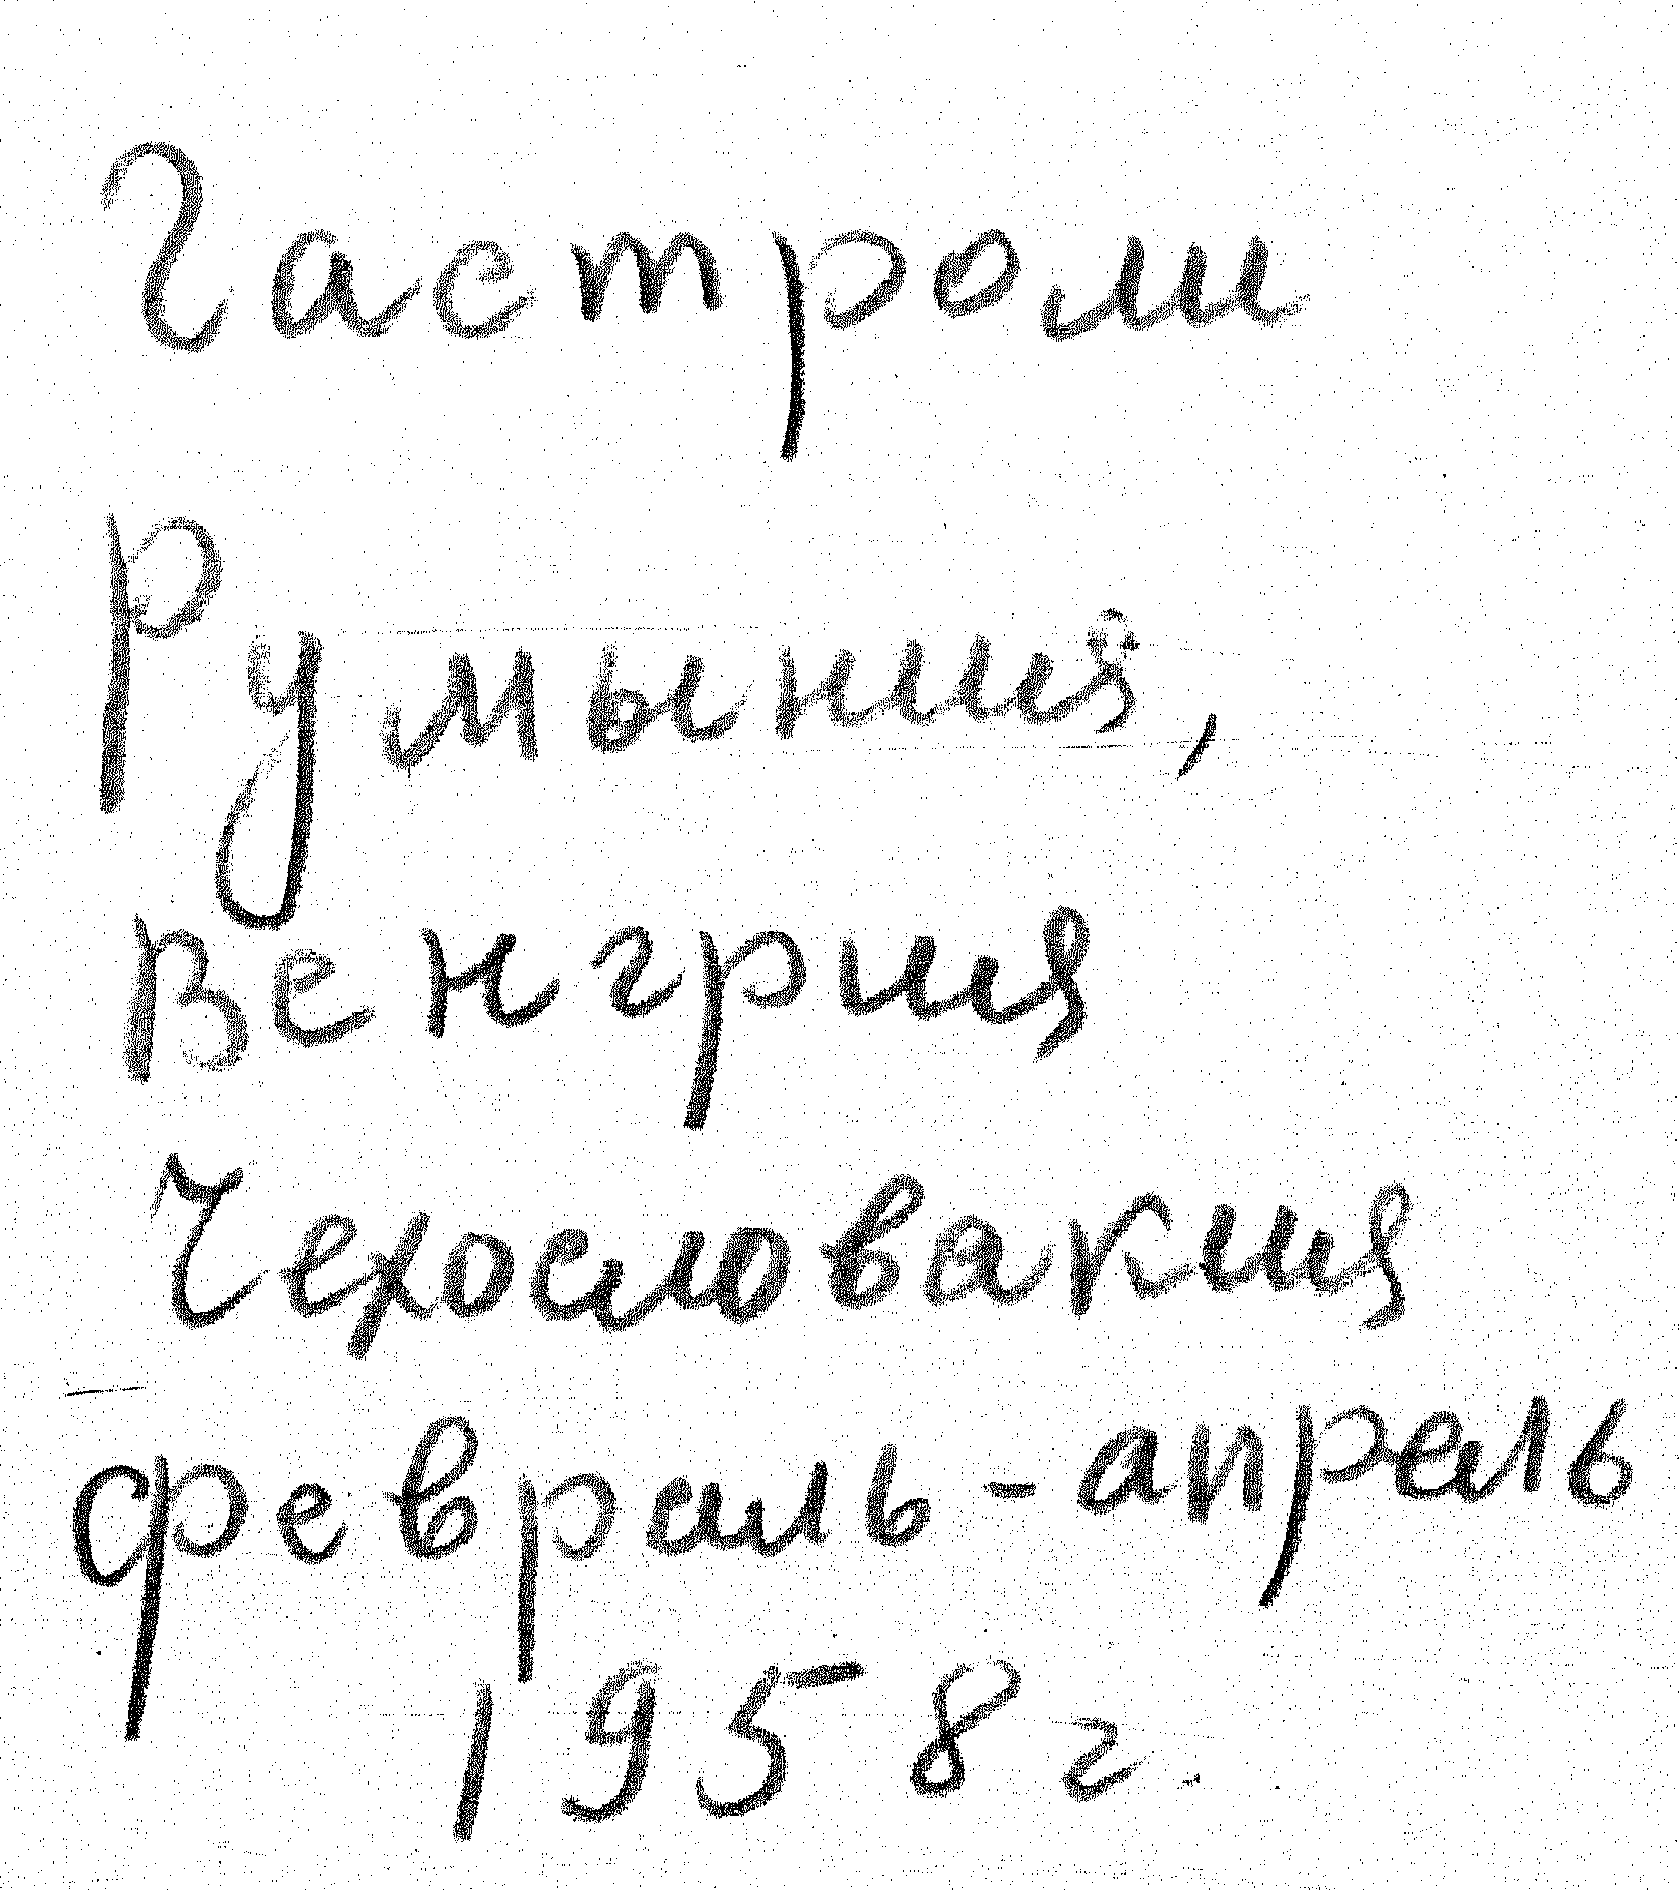 Гастроли
Румыния,
Венгрия
Чехословакия
февраль - апрель
1958 г.